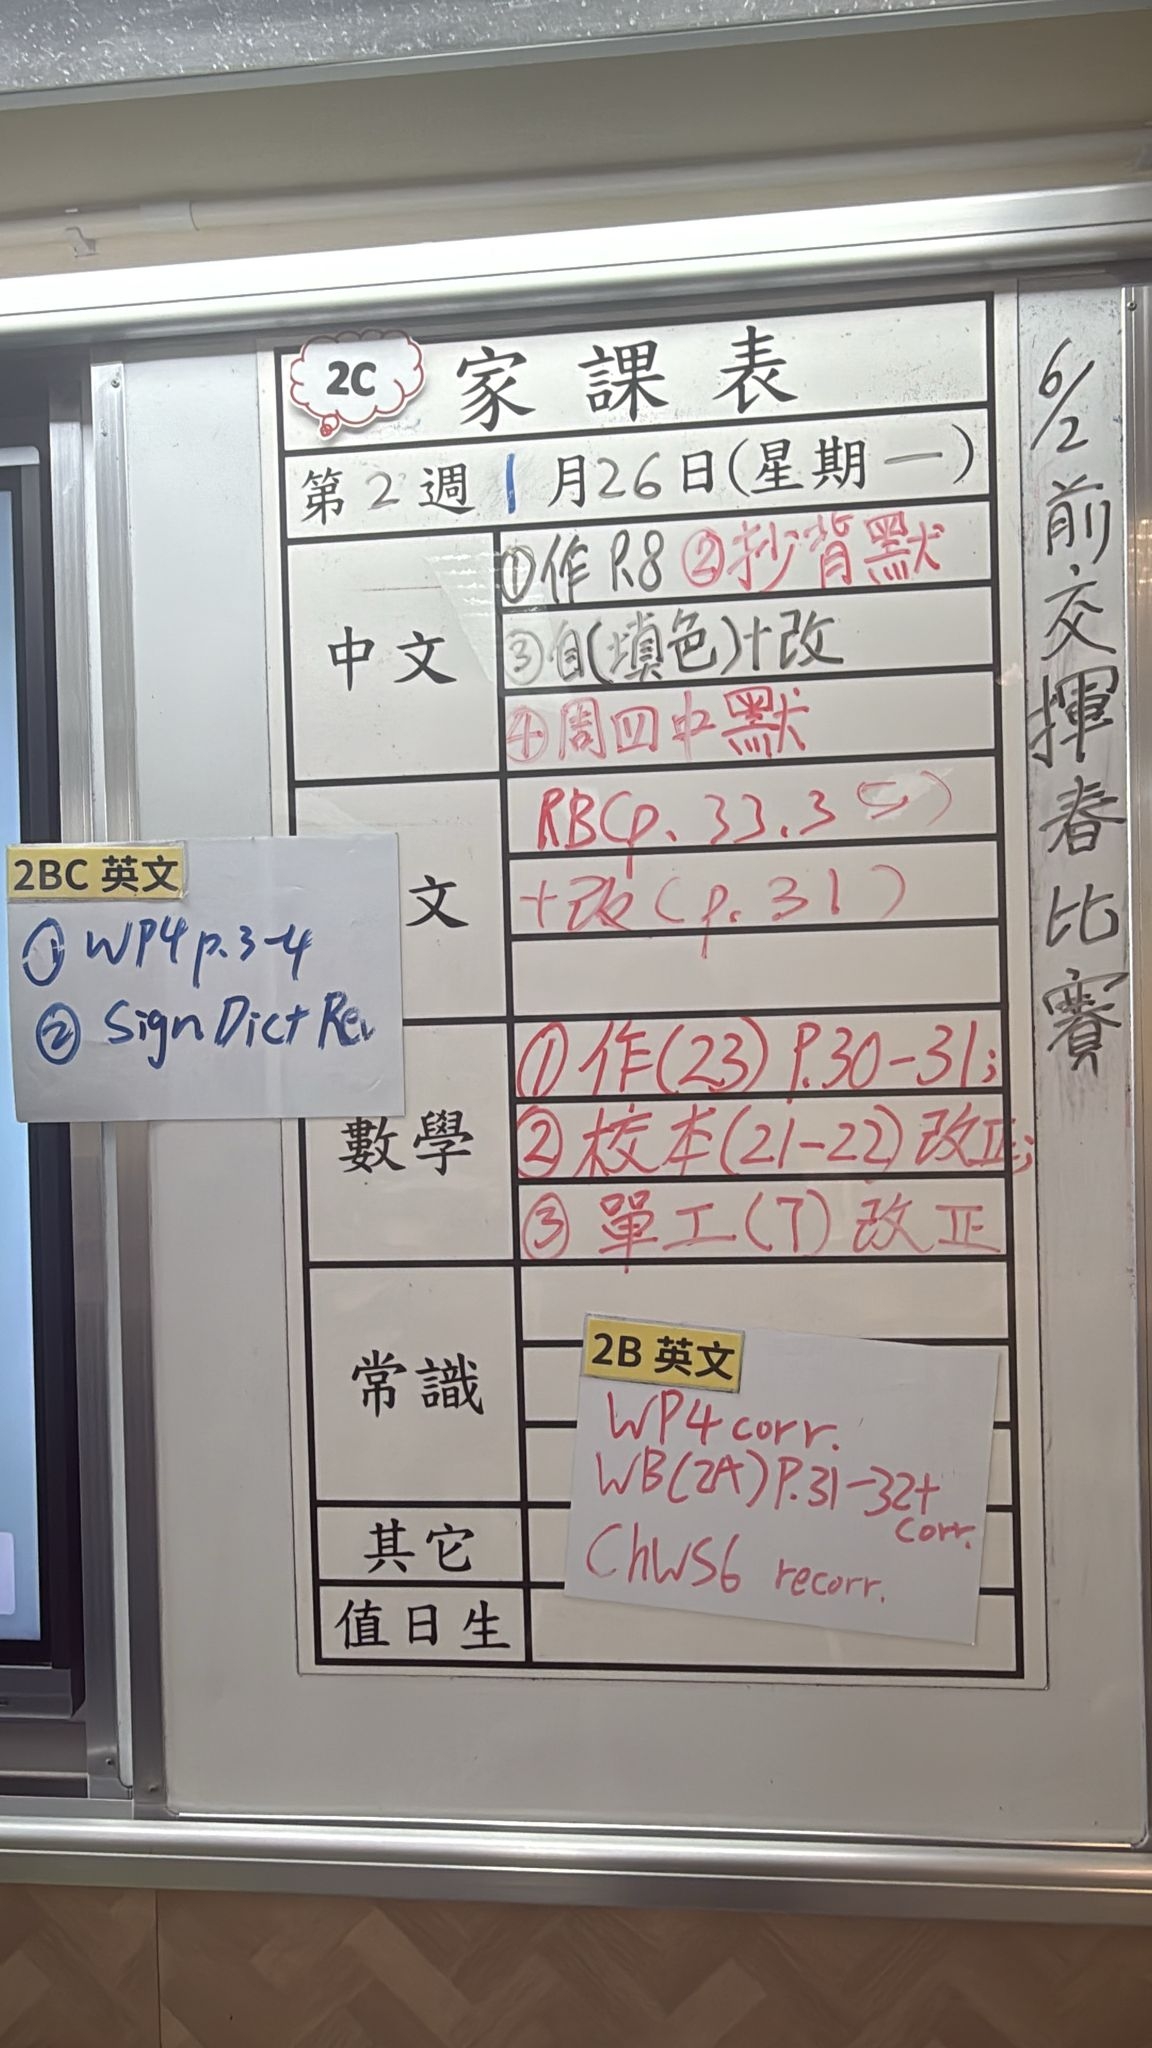 2C 家課表
第2週 1月26日(星期一)
中文
①作P.8 ②抄背默
③自(填色)+改
④周四中默
文
RB(p.33.35)
+改(p.31)
數學
①作(23) P.30-31;
②校本(21-22)改正;
③單工(7)改正
常識
其它
值日生
2BC 英文
① WP4 p.3-4
② Sign Dict Re
2B 英文
WP4 corr.
WB(2A) P.31-32+
corr.
ChWS6 recorr.
6/2前交揮春比賽